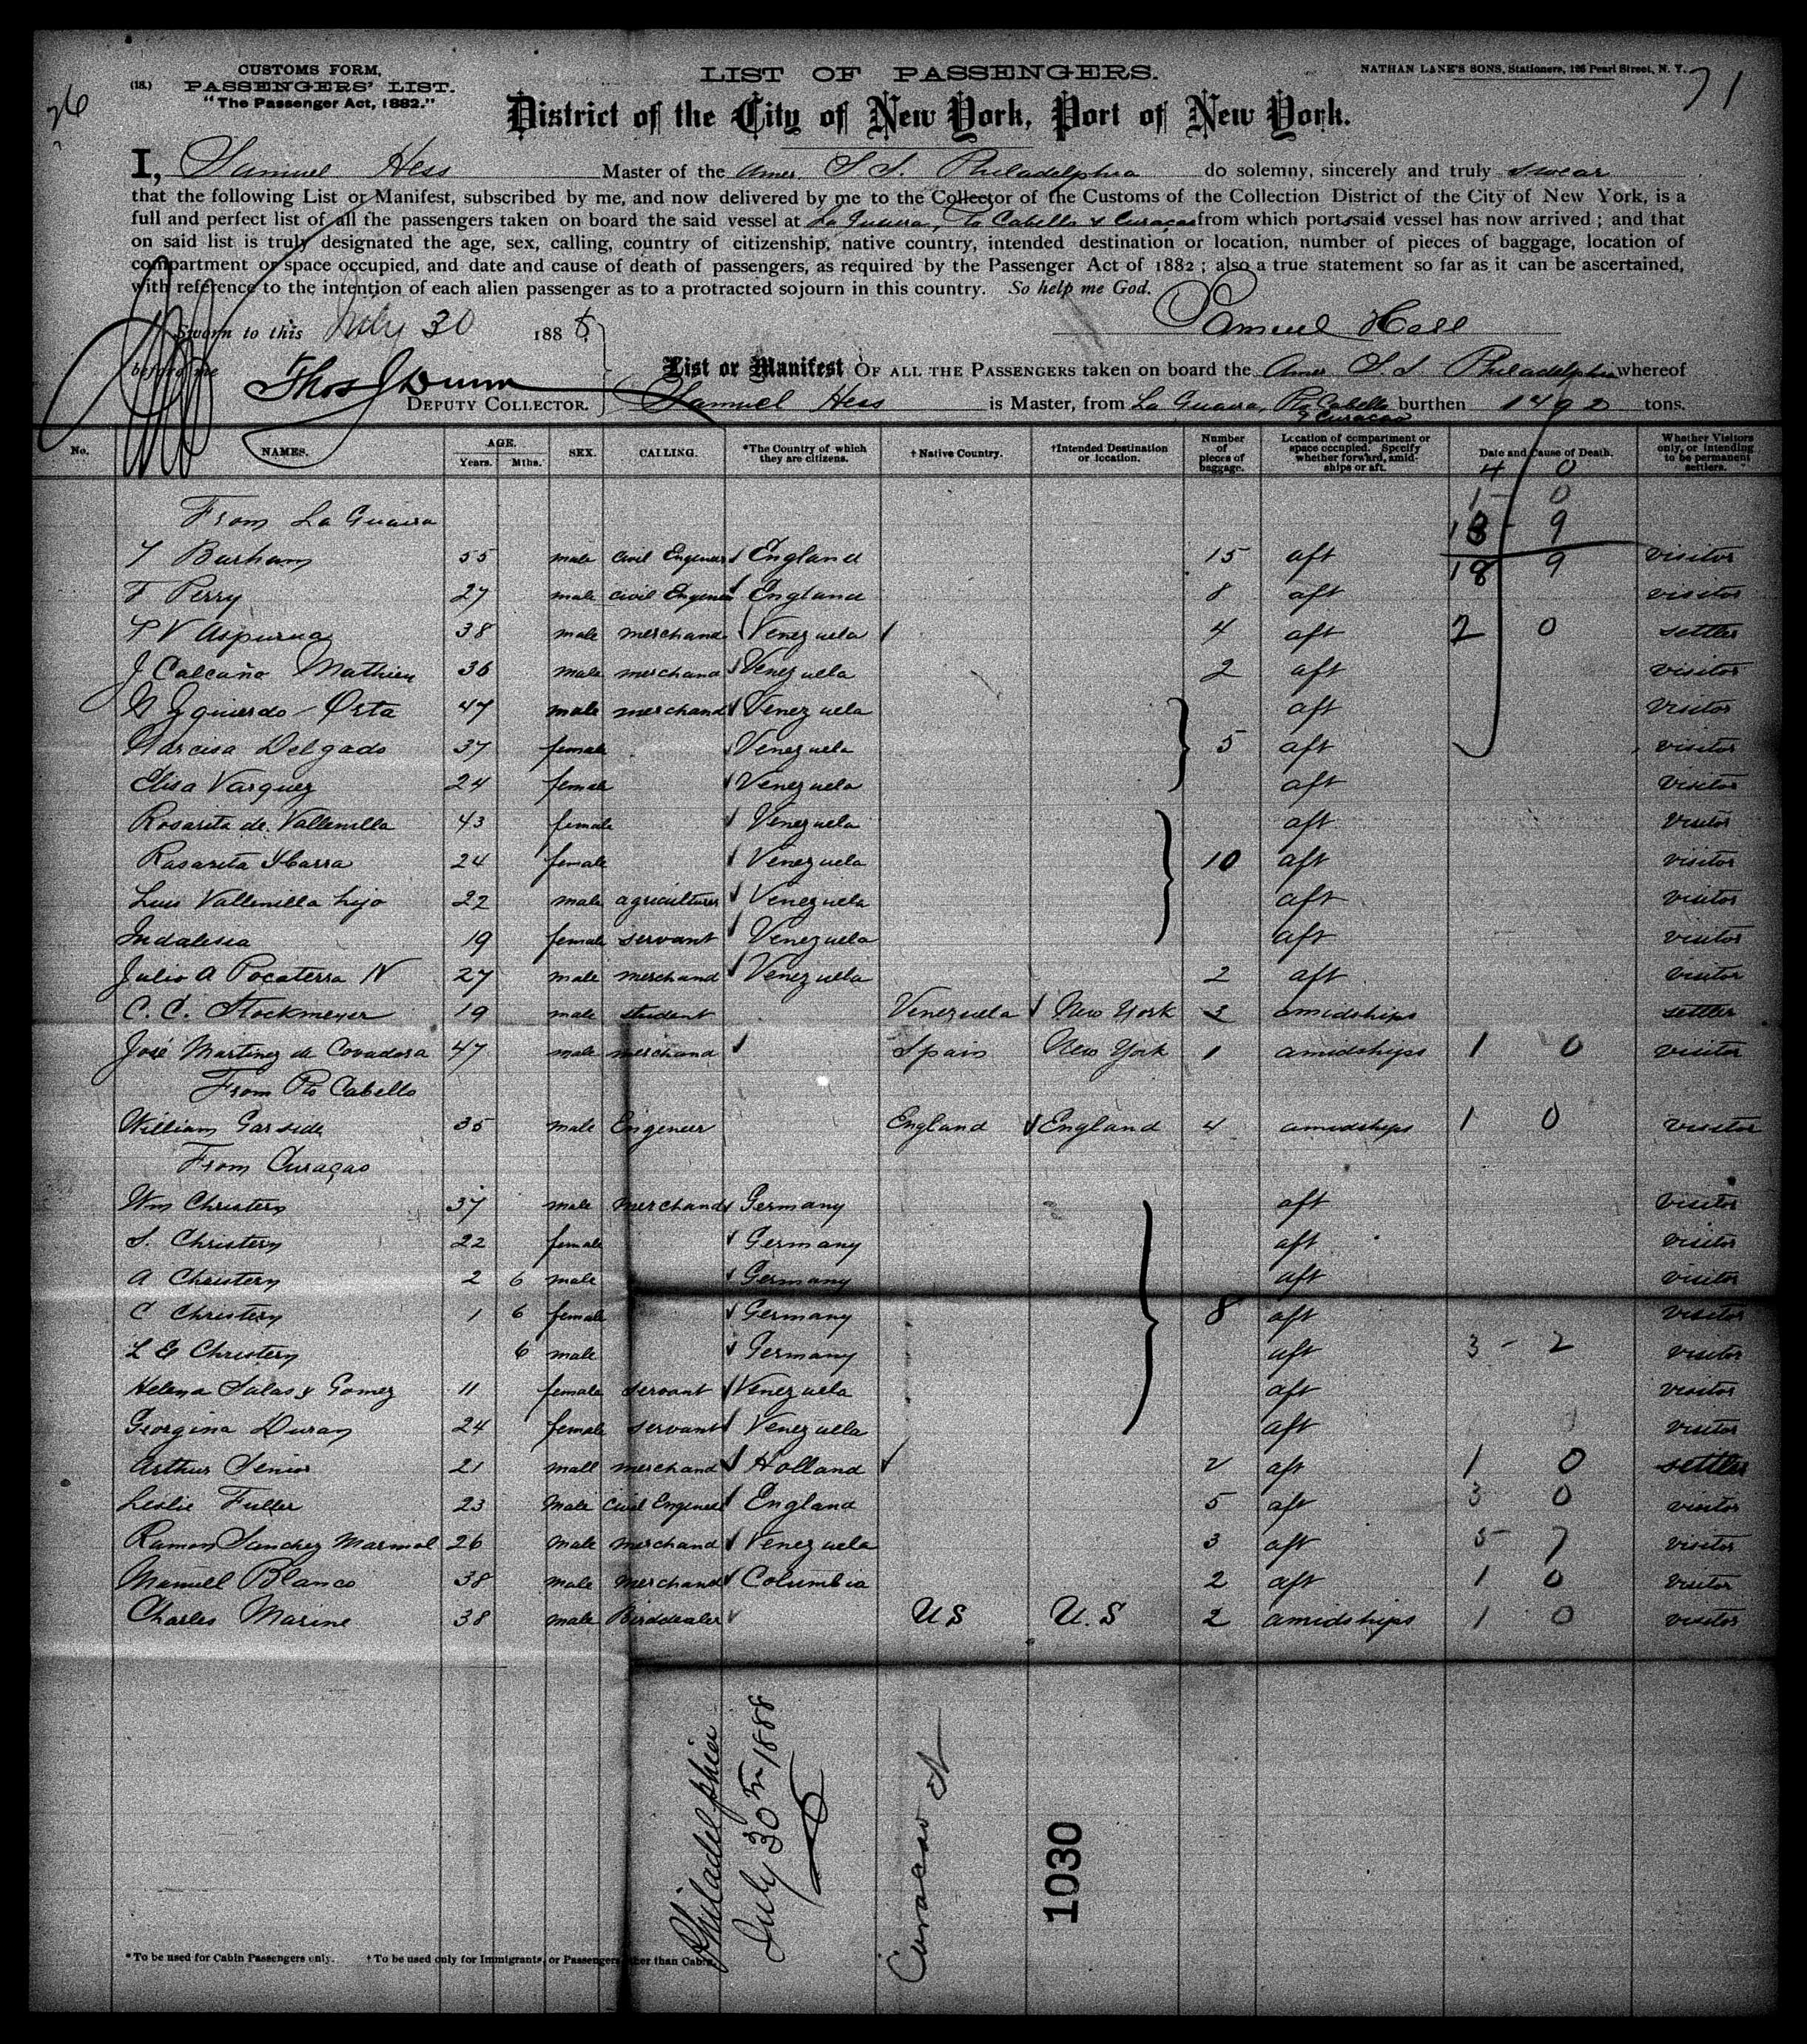 26
(18.)
CUSTOMS FORM,
PASSENGERS' LIST.
"The Passenger Act, 1882."
LIST OF PASSENGERS.
NATHAN LANE'S SONS, Stationers, 196 Pearl Street, N. Y.
71
District of the City of New York, Port of New York.
I, Samuel Hess Master of the Amer. S.S. Philadelphia do solemny, sincerely and truly swear
that the following List or Manifest, subscribed by me, and now delivered by me to the Collector of the Customs of the Collection District of the City of New York, is a
full and perfect list of all the passengers taken on board the said vessel at La Guaira, Pto Cabello & Curaçao from which ports said vessel has now arrived; and that
on said list is truly designated the age, sex, calling, country of citizenship, native country, intended destination or location, number of pieces of baggage, location of
compartment or space occupied, and date and cause of death of passengers, as required by the Passenger Act of 1882; also a true statement so far as it can be ascertained,
with reference to the intention of each alien passenger as to a protracted sojourn in this country. So help me God.
Sworn to this July 30 1888
Samuel Hess
before me Thos J Dunn
DEPUTY COLLECTOR.
List or Manifest OF ALL THE PASSENGERS taken on board the Amer S.S Philadelphia whereof
Samuel Hess is Master, from La Guaira, Pto Cabello & Curacao burthen 1492 tons.
No. NAMES. AGE. Years. Mths. SEX. CALLING. *The Country of which they are citizens. † Native Country. †Intended Destination or location. Number of pieces of baggage. Location of compartment or space occupied. Specify whether forward, amidships or aft. Date and Cause of Death. Whether Visitors only, or intending to be permanent settlers.
4 0
1 - 0
From La Guaira 13 - 9
T Burham 55 male civil Engineer England 15 aft 18 9 visitor
F Perry 27 male civil Engineer England 8 aft visitor
P V Aspurua 38 male merchand Venezuela 4 aft 2 0 settler
J Calcaño Mathieu 36 male merchand Venezuela 2 aft visitor
N Yzquierdo Orta 47 male merchand Venezuela aft visitor
Narcisa Delgado 37 female Venezuela 5 aft visitor
Elisa Varquez 24 female Venezuela aft visitor
Rosarita de Vallenilla 43 female Venezuela aft visitor
Rasarita Ybarra 24 female Venezuela 10 aft visitor
Luis Vallenilla hijo 22 male agriculturer Venezuela aft visitor
Indalesia 19 female servant Venezuela aft visitor
Julio A Pocaterra N 27 male merchand Venezuella 2 aft visitor
C. C. Stockmeyer 19 male student Venezuela New York 3 amidships settler
José Martinez de Covadosa 47 male merchand Spain New York 1 amidships 1 0 visitor
From Pto Cabello
William Garside 35 male Engeneer England England 4 amidships 1 0 visitor
From Curaçao
Wm Christern 37 male merchand Germany aft visitor
S. Christern 22 female Germany aft visitor
A Christern 2 6 male Germany aft visitor
C Christern 1 6 female Germany 8 aft visitor
L E Christern 6 male Germany aft 3 - 2 visitor
Helena Salas y Gomez 11 female servant Venezuela aft visitor
Georgina Duran 24 female servant Venezuella aft visitor
Arthur Senior 21 mall merchand Holland 2 aft 1 0 settler
Leslie Fuller 23 Male Civil Engineer England 5 aft 3 0 visitor
Ramon Sanchez Marmol 26 Male merchand Venezuela 3 aft 5 - 7 visitor
Manuell Blanco 38 male merchand Columbia 2 aft 1 0 visitor
Charles Marine 38 male Birddealer US U.S 2 amidships 1 0 visitor
Philadelphia
July 30th 1888
Curacao
1030
*To be used for Cabin Passengers only. †To be used only for Immigrants, or Passengers other than Cabin.